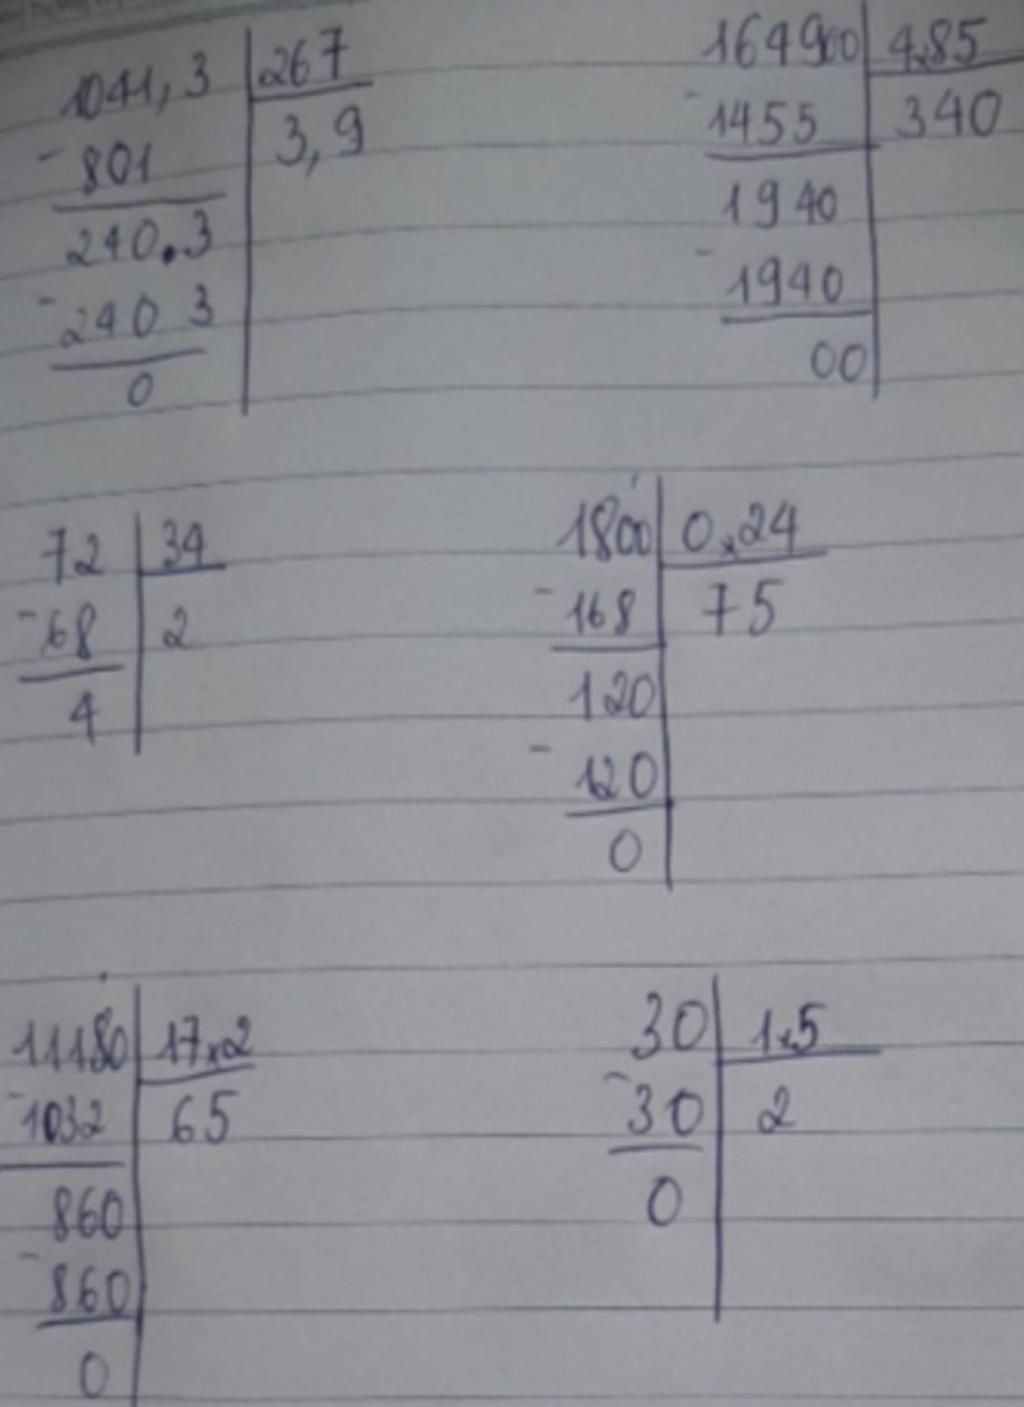 1041,3 267
- 801 3,9
240.3
- 240 3
0
164900 4,85
- 1455 340
1940
- 1940
00
72 34
- 68 2
4
1800 0,24
- 168 75
120
- 120
0
11180 17,2
- 1032 65
860
- 860
0
30 1,5
- 30 2
0